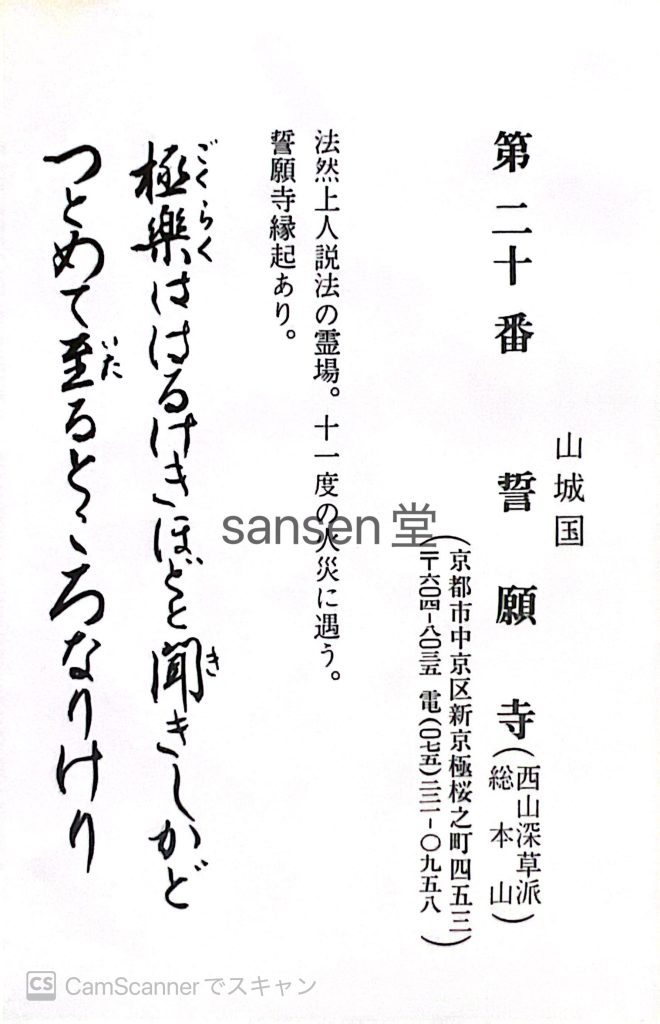 山城国
第二十番 誓願寺(西山深草派総本山)
(京都市中京区新京極桜之町四五三
〒六〇四-八〇三五 電(〇七五)二二一-〇九五八)
法然上人説法の霊場。十一度の火災に遇う。
誓願寺縁起あり。
極樂ははるけきほどと聞きしかど
ごくらく
き
つとめて至るところなりけり
いた
sansen堂
CS CamScannerでスキャン